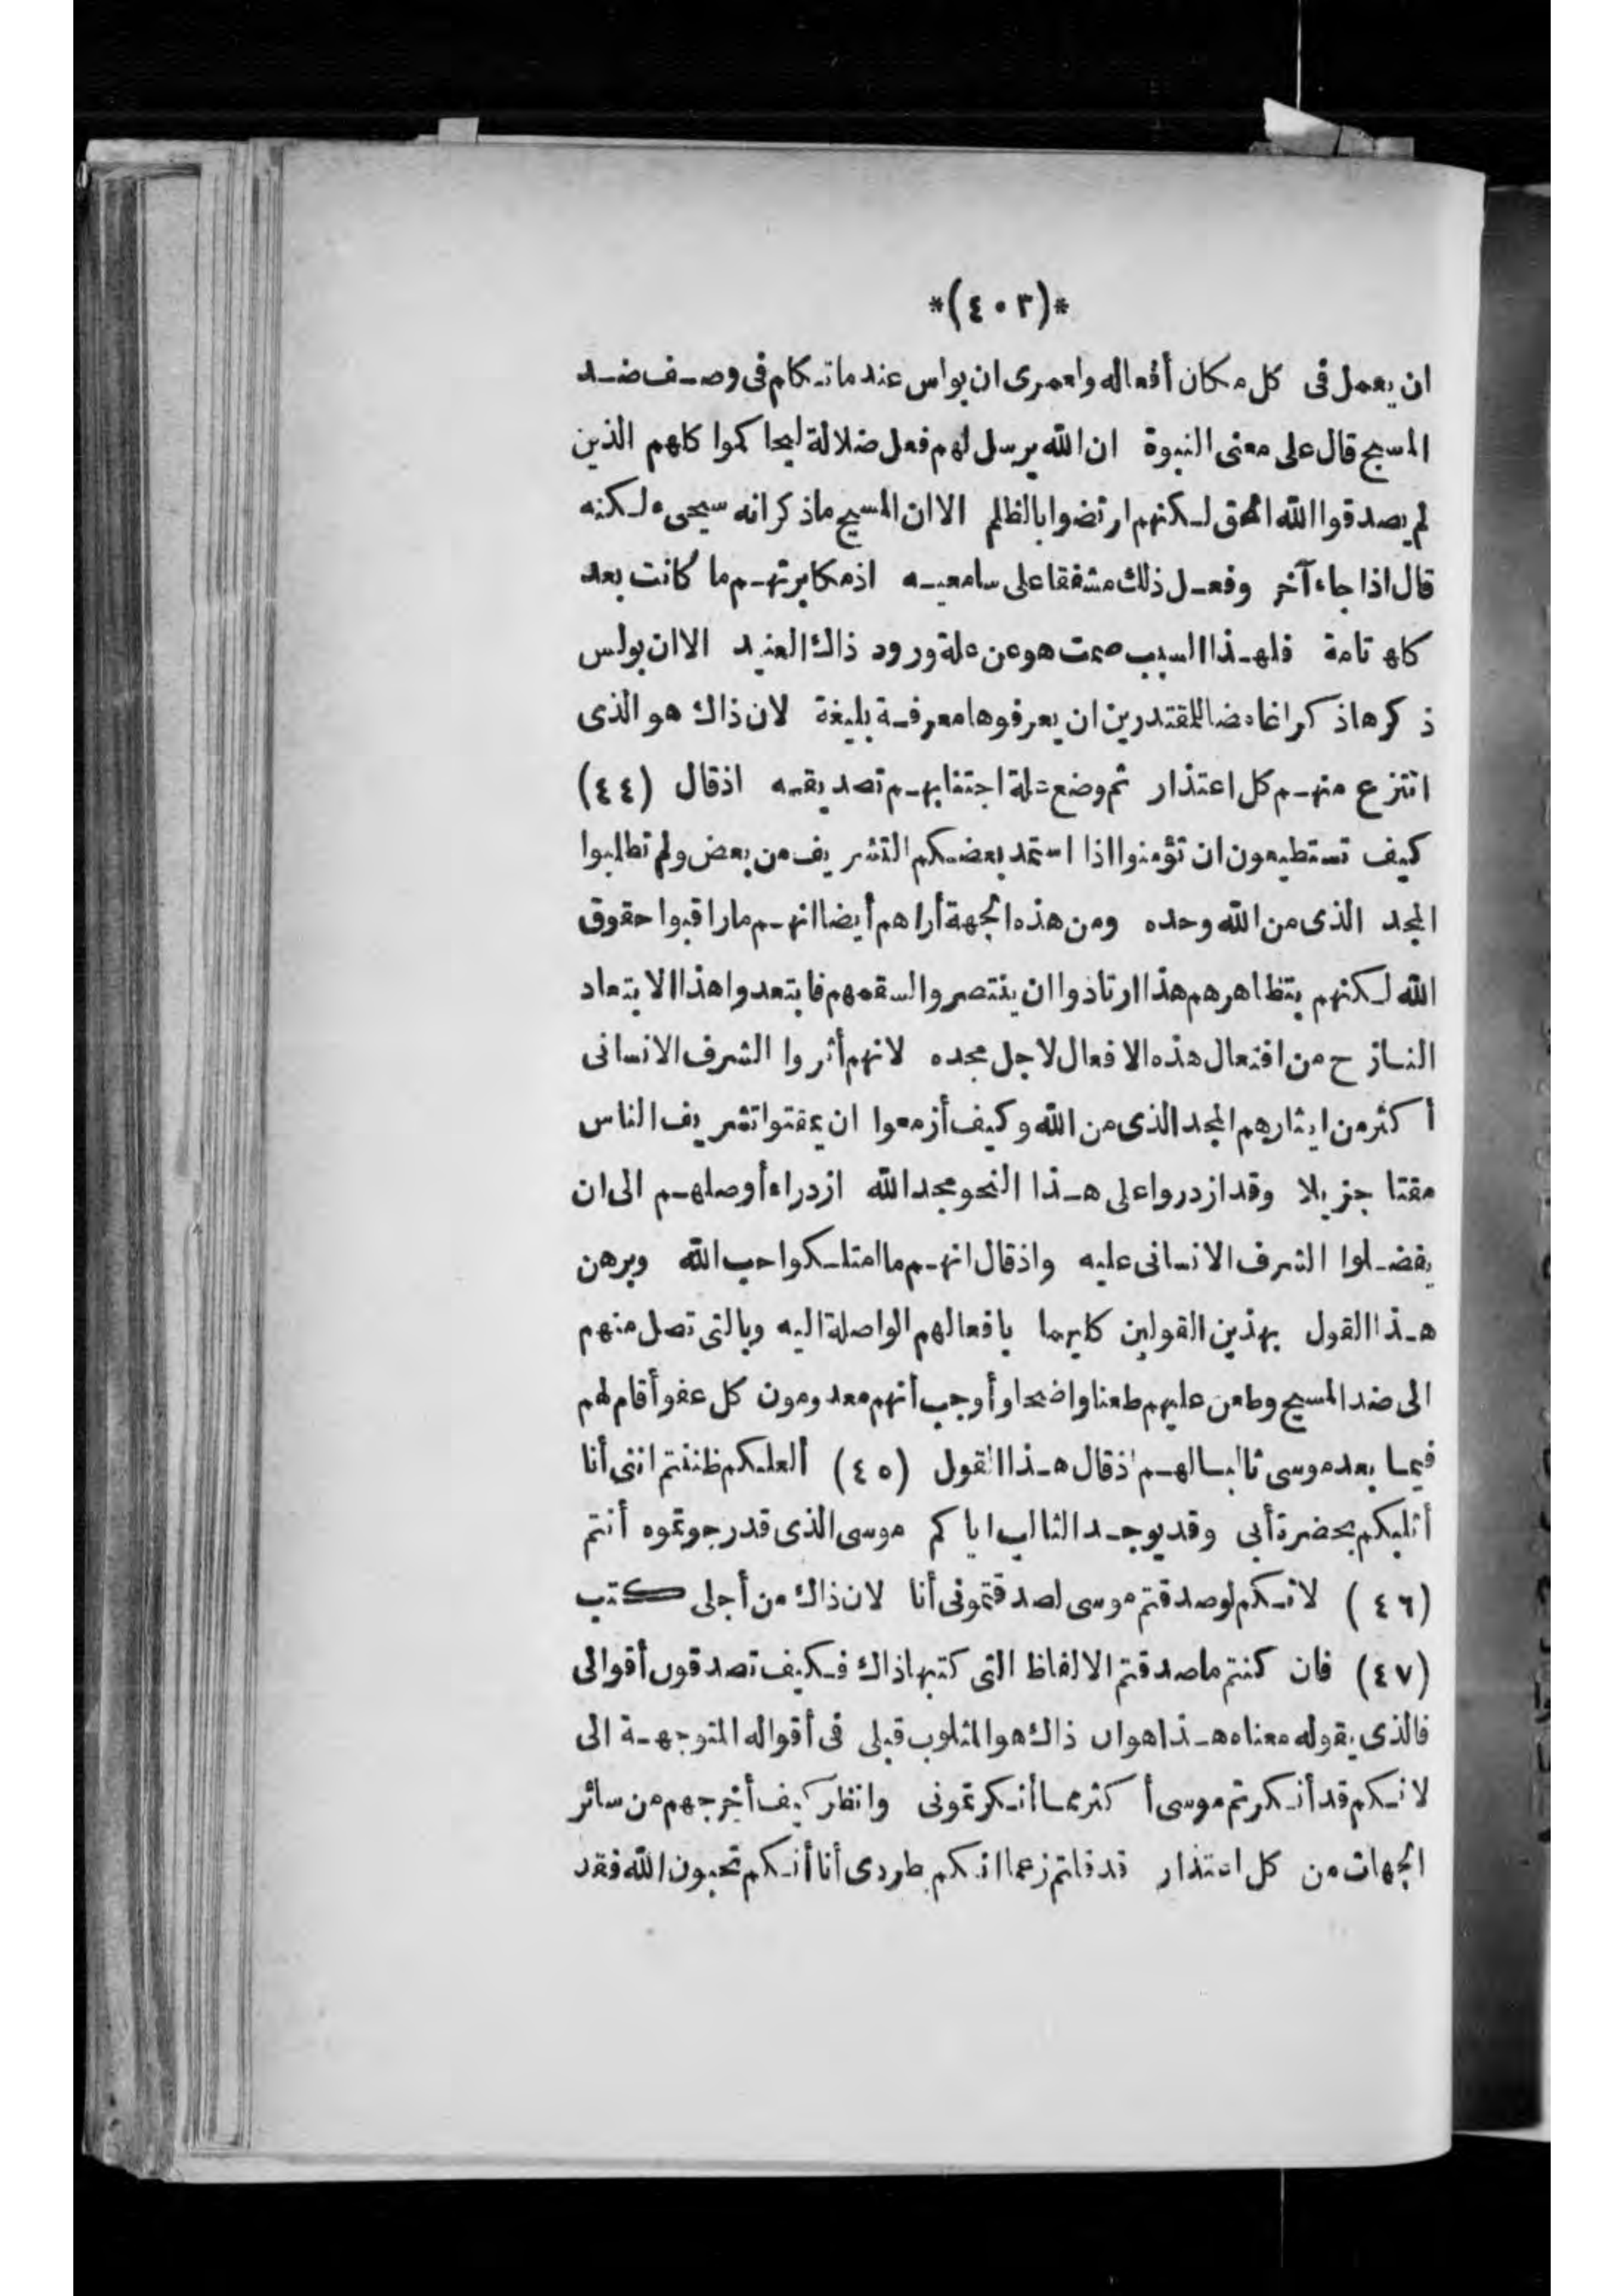 *(٤٠٣)*
ان يعمل فى كل مكان أفعاله ولعمرى ان بولس عندما تكلم فى وصف ضد
المسيح قال على معنى النبوة ان الله يرسل لهم فعل ضلالة ليحاكموا كلهم الذين
لم يصدقوا الله الحق لكنهم ارتضوا بالظلم الا ان المسيح ماذكر انه سيجىء لكنه
قال اذا جاء آخر وفعل ذلك مشفقا على سامعيه اذ مكابرتهم ما كانت بعد
كلها تامة فلهذا السبب صمت هو عن علة ورود ذاك العنيد الا ان بولس
ذكرها ذكرا غامضا للمقتدرين ان يعرفوها معرفة بليغة لان ذاك هو الذى
انتزع منهم كل اعتذار ثم وضع علة اجتنابهم تصديقه اذ قال (٤٤)
كيف تستطيعون ان تؤمنوا اذا استمد بعضكم التشريف من بعض ولم تطلبوا
المجد الذى من الله وحده ومن هذه الجهة أراهم أيضا انهم ماراقبوا حقوق
الله لكنهم بتظاهرهم هذا ارتاذوا ان ينتصروا لسقمهم فابتعدوا هذا الابتعاد
النازح من افتعال هذه الافعال لاجل مجده لانهم أثروا الشرف الانسانى
أكثر من ايثارهم المجد الذى من الله وكيف أزمعوا ان يمقتوا تشريف الناس
مقتا جزيلا وقد ازدروا على هذا النحو مجد الله ازدراء أوصلهم الى ان
يفضلوا الشرف الانسانى عليه واذ قال انهم ما امتلكوا حب الله وبرهن
هذا القول بهذين القولين كليهما بافعالهم الواصلة اليه وبالتى تصل منهم
الى ضد المسيح وطعن عليهم طعنا واضحا وأوجب أنهم معدومون كل عفو أقام لهم
فيما بعد موسى ثالبا لهم اذ قال هذا القول (٤٥) ألعلكم ظننتم اننى أنا
أثلبكم بحضرة أبى وقد يوجد الثالب اياكم موسى الذى قد رجوتموه أنتم
(٤٦) لانكم لو صدقتم موسى لصدقتمونى أنا لان ذاك من أجلى كتب
(٤٧) فان كنتم ما صدقتم الالفاظ التى كتبها ذاك فكيف تصدقون أقوالى
فالذى يقوله معناه هذا هو ان ذاك هو المثلوب قبلى فى أقواله المتوجهة الى
لانكم قد أنكرتم موسى أكثر مما أنكرتمونى وانظر كيف أخرجهم من سائر
الجهات من كل اعتذار قد قلتم زعما انكم بطردى أنا أنكم تحبون الله فقد